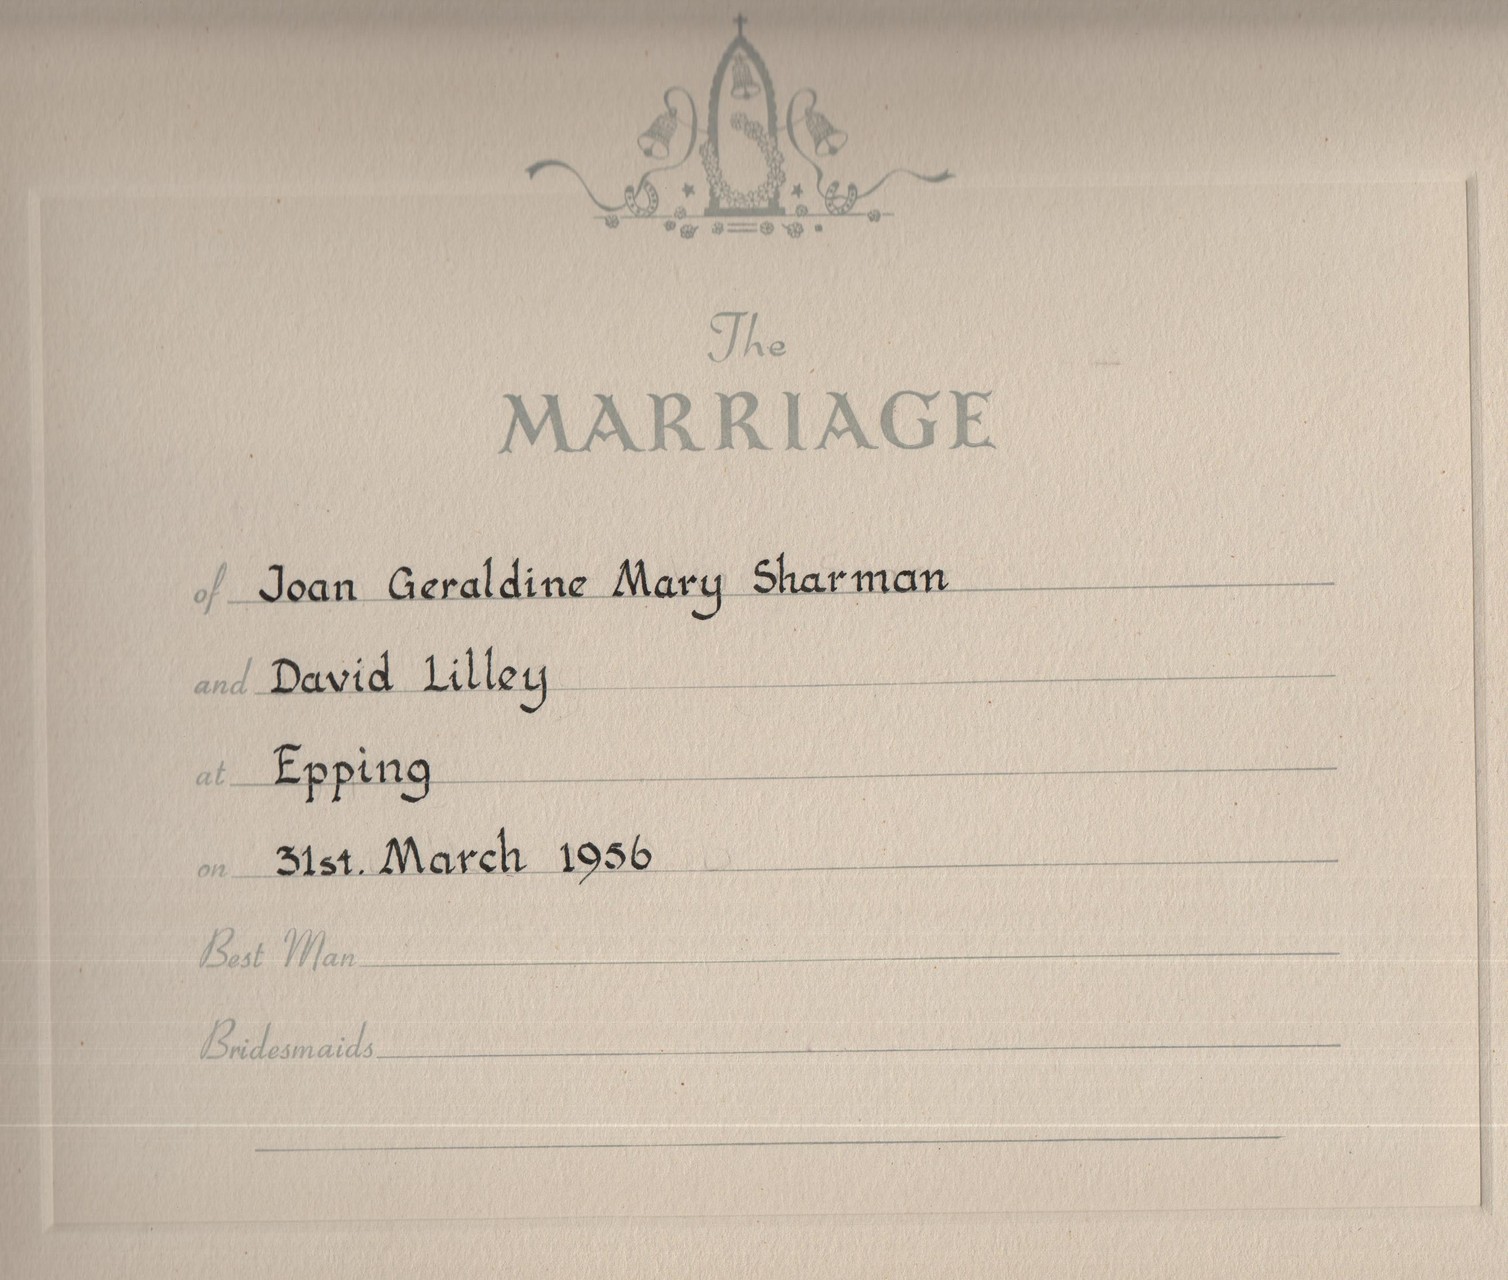 The
MARRIAGE
of Joan Geraldine Mary Sharman
and David Lilley
at Epping
on 31st. March 1956
Best Man
Bridesmaids